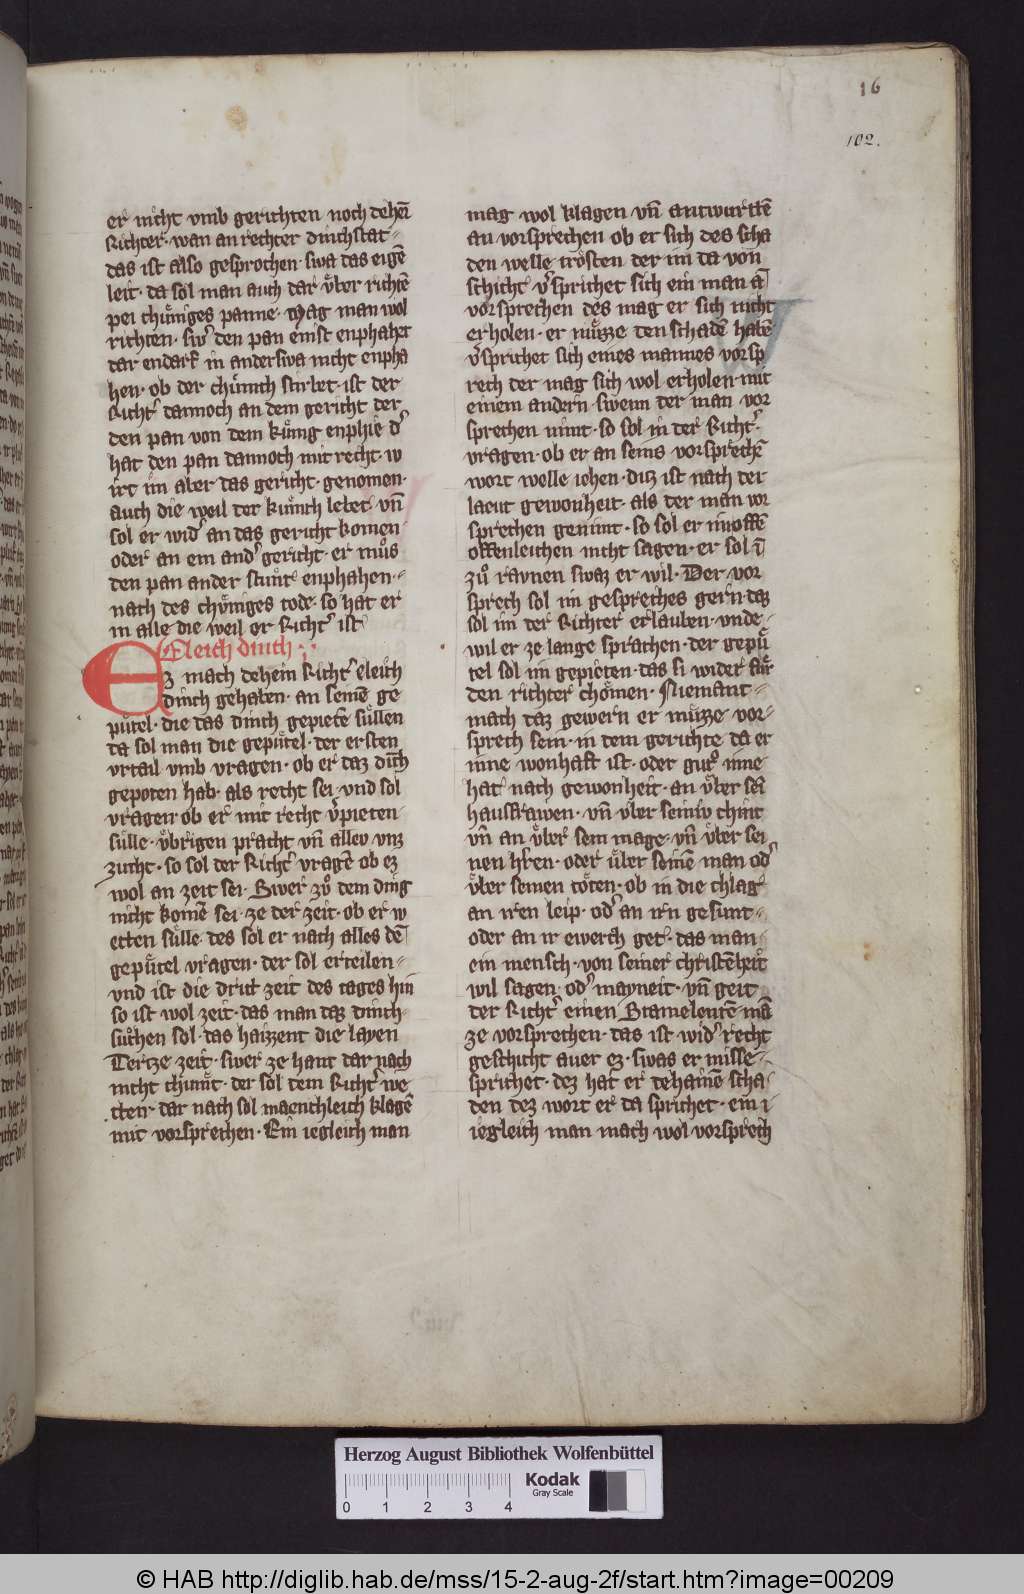 16
102.
er nicht vmb gerichten noch dehei̅
Richter · wan an rechter dinchstat -
das ist also gesprochen · swa das eige̅
leit · da sol man auch dar vͤber richte̅
pei chuͤniges panne · Mag man wol
richten · sw᾽ den pan einst enphahet
dar endarf in anderswa nicht enpha
hen · ob der chuͤnich stirbet · ist der
Richt᾽ dannoch an dem gericht der
den pan von dem kuͤnig enphie d᾽
hat den pan dannoch mit recht · w
irt im aber das gericht · genomen ·
auch die weil der kuͤnich lebet · vn̅
sol er wid᾽ an das gericht komen
oder an ein and᾽ gericht · er muͦs
den pan ander stunt enphahen · -
nach des chuͤniges tode · so hat er
in alle die weil er Richt᾽ ist
Eleich dinch ·
Ez mach dehein Richt᾽ eleich
dinch gehaben · an seine̅ ge
puͤtel · die das dinch gepiete̅ suͤllen
da sol man die gepuͤtel · der ersten
vrtail vmb vragen · ob er daz dich
gepoten hab · als recht sei · vnd sol
vragen · ob er mit recht v᾽pieten
suͤlle · vͤbrigen pracht vn̅ allev vnz
zucht · so sol der Richt᾽ vrage̅ ob ez
wol an zeit sei · Swer zuͦ dem ding
nicht kome̅ sei · ze der zeit · ob er w
etten suͤlle · des sol er nach alles de̅
gepuͤtel vragen · der sol erteilen -
vnd ist die drit zeit des tages hin
so ist wol zeit · das man daz dinch -
suͦchen sol · das haizzent die layen
Tertze zeit · swer ze hant dar nach
nicht chumt · der sol dem Richt᾽ we
tten · dar nach sol maenchleich klage̅
mit vorsprechen · Ein iegleich man
mag wol klagen vn̅ antwurtte̅
an vorsprechen ob er sich des scha
den welle troͤsten der im da von
schicht v᾽sprichet sich ein man a̅
vorsprechen des mag er sich nicht
erholen · er muͤzze den schade̅ habe̅
v᾽sprichet sich eines mannes vorsp
rech der mag sich wol erholen mit
einem andern · swenn der man vor
sprechen nimt · so sol in der Richt᾽ ·
vragen · ob er an seins vorspreche̅
wort welle iehen · diz ist nach der
laeut gewonheit · als der man vor
sprechen genimt · so sol er im offe̅
offenleichen nicht sagen · er sol i̅
zuͦ ravnen swaz er wil · Der vor
sprech sol im gespreches gern · daz
sol im der Richter erlauben · vnde -
wil er ze lange sprachen · der gepuͤ
tel sol im gepieten · das si wider fuͤr
den richter choͤmen · Niemant -
mach daz gewern er muͤzze vor -
sprech sein · in dem gerichte da er
inne wonhaft ist · oder guͦt inne
hat nach gewonheit · an vͤber sei̅
hausfrawen · vn̅ vͤber seiniv chint
vn̅ an vͤber sein mage · vn̅ vͤber sei
nen h᾽ren · oder vͤber seine̅ man od᾽
vͤber seinen toͤten · ob in die chlag
an iren leip · od᾽ an ir̅n gesunt -
oder an ir ewerch get · das man
ein mensch · von seiner christe̅heit
wil sagen · od᾽ mayneit · vn̅ geit
der Richt᾽ einen
ze vorsprechen · das ist wid᾽ recht
geschicht auer ez · swas er misse -
sprichet · dez hat er dehaine̅ scha
den dez wort er da sprichet · ein i
iegleich man mach wol vorsprech
Herzog August Bibliothek Wolfenbüttel
0 1 2 3 4
Kodak
Gray Scale
© HAB http://diglib.hab.de/mss/15-2-aug-2f/start.htm?image=00209